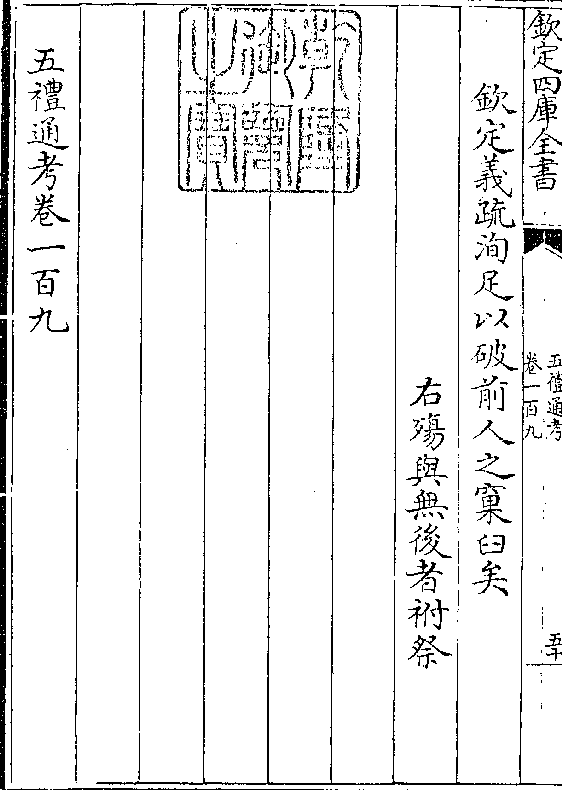 欽定四庫全書
五禮通考
卷一百九
五十
欽定義疏洵足以破前人之窠臼矣
右殤與無後者祔祭
乾隆
御覽
之寶
五禮通考卷一百九